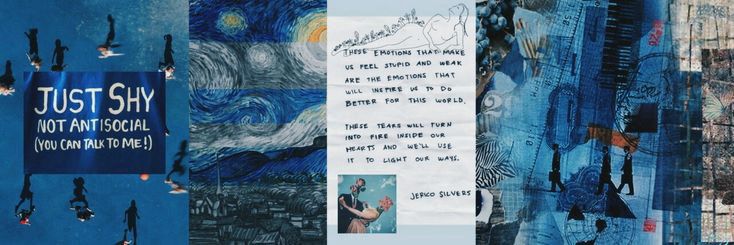 JUST SHY
NOT ANTISOCIAL
(YOU CAN TALK TO ME!)
THESE EMOTIONS THAT MAKE
US FEEL STUPID AND WEAK
ARE THE EMOTIONS THAT
WILL INSPIRE US TO DO
BETTER FOR THIS WORLD.
THESE TEARS WILL TURN
INTO FIRE INSIDE OUR
HEARTS AND WE'LL USE
IT TO LIGHT OUR WAYS.
JERICO SILVERS